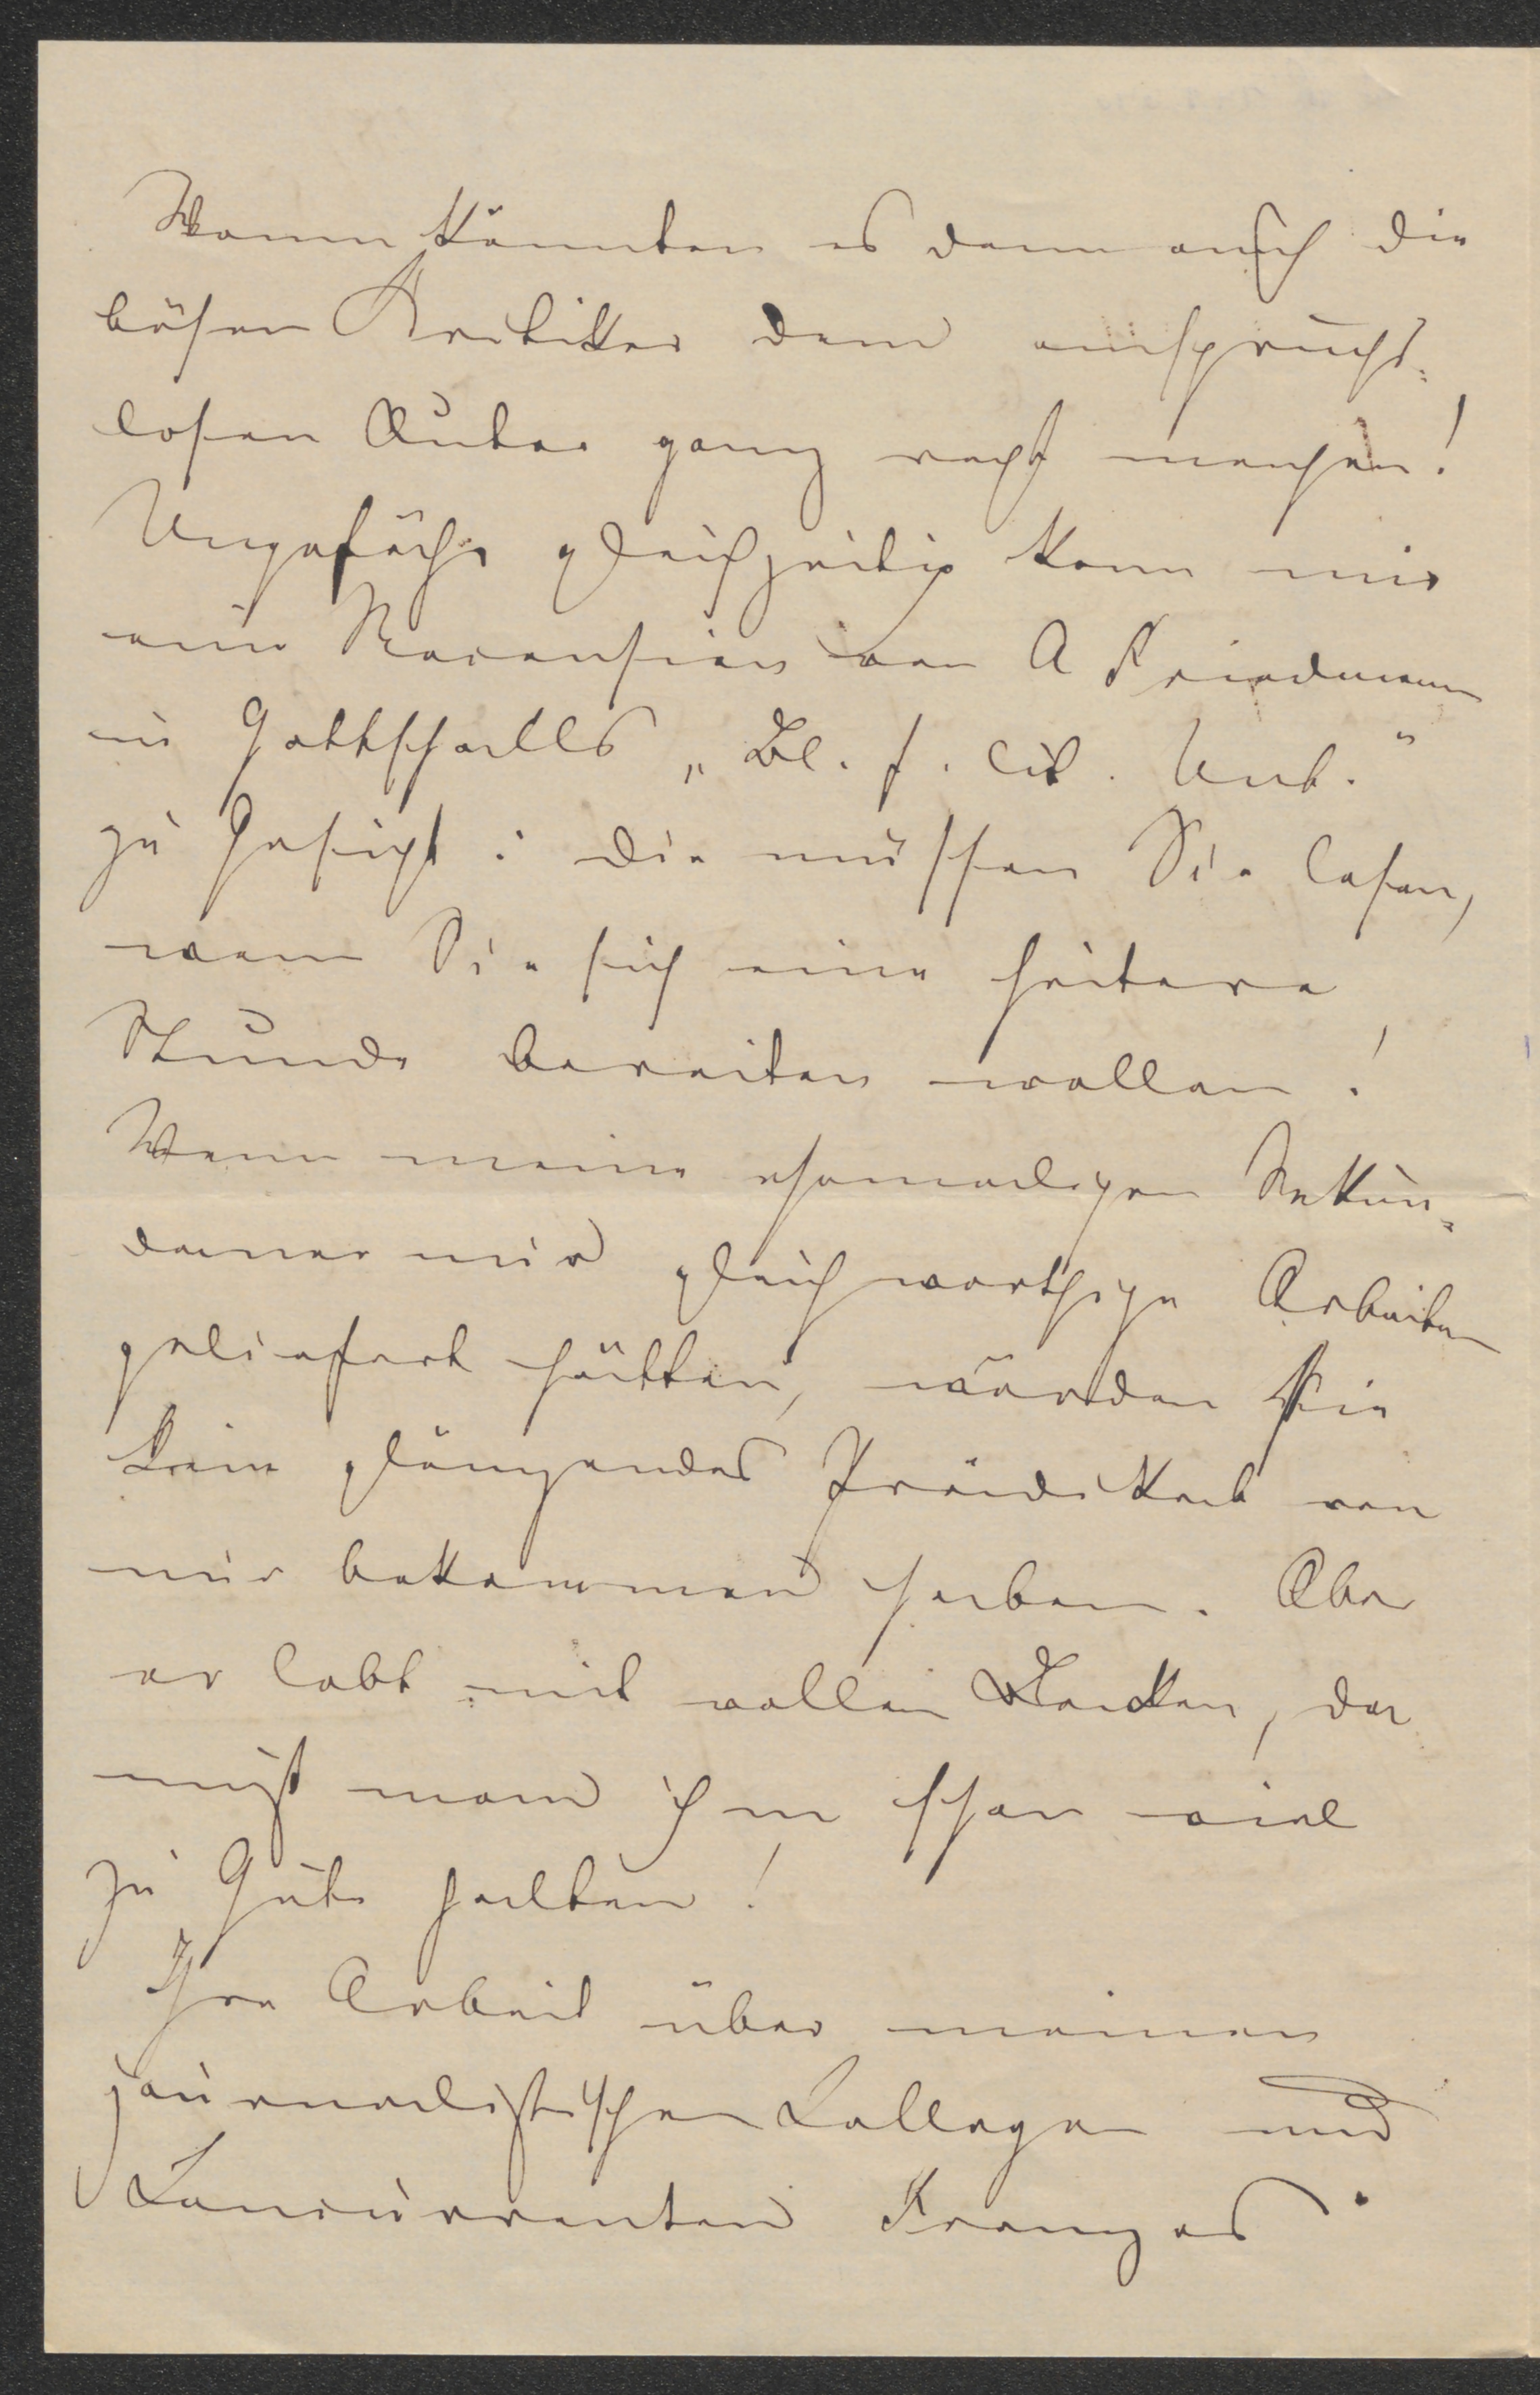 Wann könnten es denn auch die
bösen Kritiker dem anspruchs-
losen Autor ganz recht machen!
Ungefähr gleichzeitig kam mir
eine Recension von A Friedmann
in Gottschalls „Bl. f. lit. Unt."
zu Gesicht: die müssen Sie lesen,
wenn Sie sich eine heitere
Stunde bereiten wollen!
Wenn meine ehemaligen Sekun-
daner mir gleich werthige Arbeiten
geliefert hätten, würden sie
kein glänzendes Prädikat von
mir bekommen haben. Aber
er lobt mit vollen Backen, da
muß man ihm schon viel
zu Gute halten!
Ihre Arbeit über meinen
journalistischen Collegen und
Concurrenten Franzos